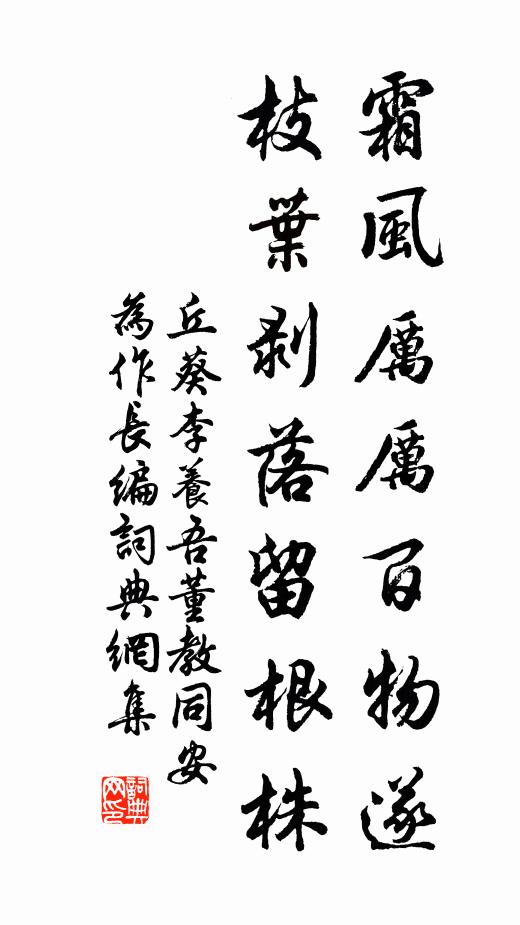 霜風厲厲百物遂
枝葉剥落留根株
丘葵李養吾董教同安
為作長編詞典網集
詞典网印